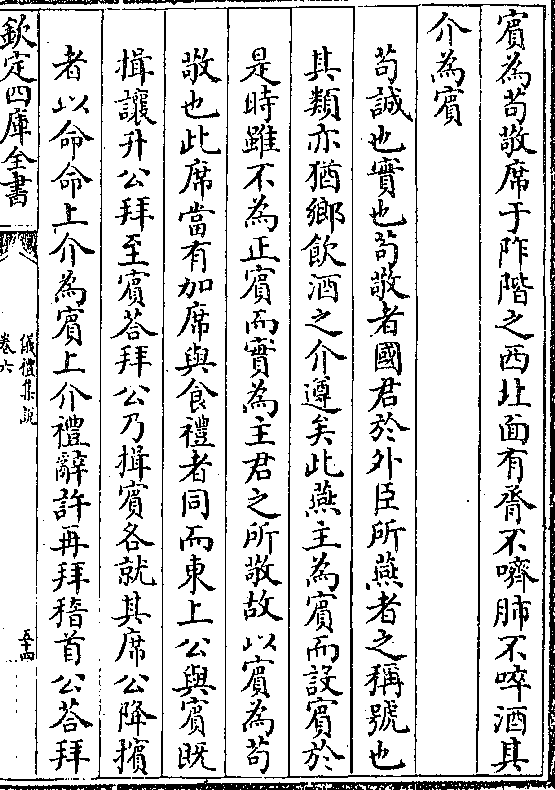 賓為苟敬席于阼階之西北面有脀不嚌肺不啐酒其
介為賓
苟誠也實也苟敬者國君於外臣所燕者之稱號也
其類亦猶鄉飲酒之介遵矣此燕主為賓而設賓於
是時雖不為正賓而實為主君之所敬故以賓為苟
敬也此席當有加席與食禮者同而東上公與賓既
揖讓升公拜至賓荅拜公乃揖賓各就其席公降擯
者以命命上介為賓上介禮辭許再拜稽首公荅拜
欽定四庫全書
儀禮集說
卷六
五十四